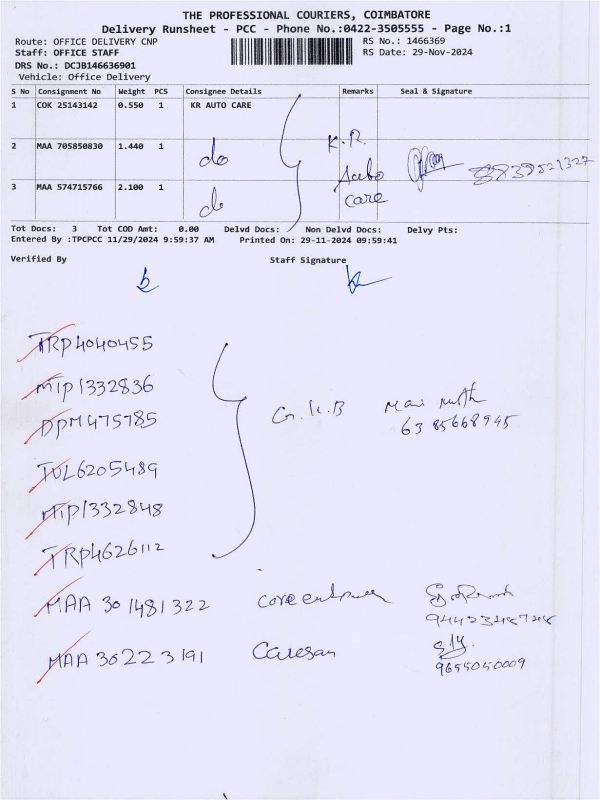 THE PROFESSIONAL COURIERS, COIMBATORE
Delivery Runsheet - PCC - Phone No.:0422-3505555 - Page No.:1
Route: OFFICE DELIVERY CNP RS No.: 1466369
Staff: OFFICE STAFF RS Date: 29-Nov-2024
DRS No.: DCJB146636901
Vehicle: Office Delivery
S No Consignment No Weight PCS Consignee Details Remarks Seal & Signature
1 COK 25143142 0.550 1 KR AUTO CARE
2 MAA 705850830 1.440 1 do K.R.
Auto
care
3 MAA 574715766 2.100 1 do
Tot Docs: 3 Tot COD Amt: 0.00 Delvd Docs: Non Delvd Docs: Delvy Pts:
Entered By :TPCPCC 11/29/2024 9:59:37 AM Printed On: 29-11-2024 09:59:41
Verified By Staff Signature
TRP4040455
MTP1332836
DPM475785 G.K.B
6385668945
TUL6205489
MTP1332848
TRP4626112
MAA 301481322
MAA 302223191 Caresan
9655050009